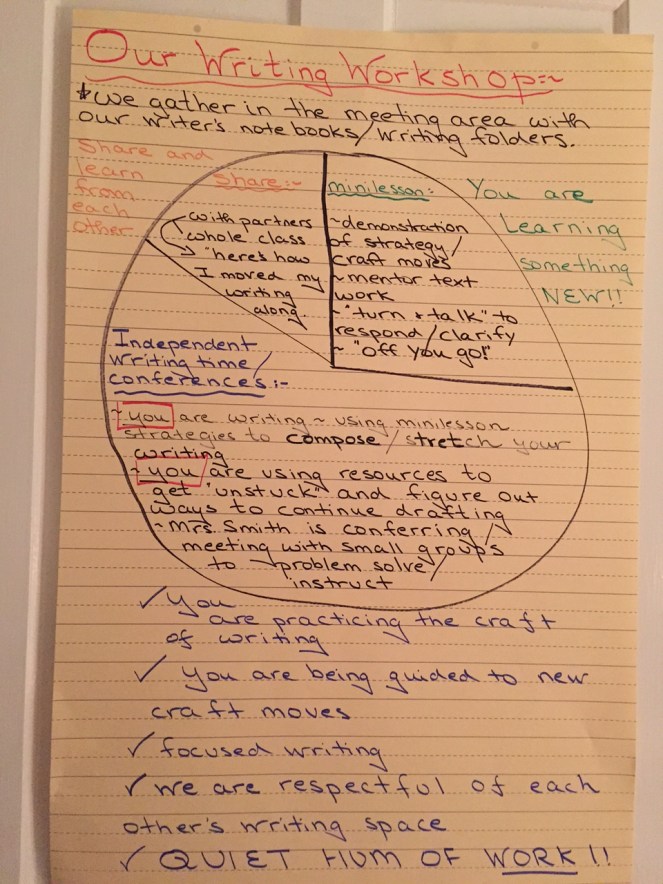 Our Writing Workshop:~
*we gather in the meeting area with
our writer's notebooks/writing folders.
Share and
learn
from
each
other
Share:~
with partners
whole class
"here's how
I moved my
writing
along
minilesson:
~demonstration
of strategy/
craft moves
~mentor text
work
~"turn + talk" to
respond/clarify
~ "off you go!"
You are
Learning
something
NEW!!
Independent
writing time/
conferences:-
~you are writing ~ using minilesson
strategies to compose/stretch your
writing
~you are using resources to
get "unstuck" and figure out
ways to continue drafting
~Mrs. Smith is conferring/
meeting with small groups
to problem solve/
instruct
✓ You
are practicing the craft
of writing
✓ You are being guided to new
craft moves
✓ focused writing
✓ we are respectful of each
other's writing space
✓ QUIET HUM OF WORK!!